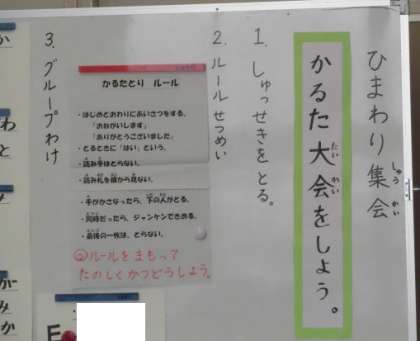 ひまわり集会
しゅう かい
かるた大会をしよう。
たい かい
1. しゅっせきをとる。
2. ルールせつめい
かるたとり ルール
・はじめとおわりにあいさつをする。
「おねがいします」
「ありがとうございました」
・とるときに「はい」という。
・読み手はとらない。
・読み札を横から見ない。
・手がかさなったら、下の人がとる。
・同時だったら、ジャンケンできめる。
・最後の一枚は、とらない。
◎ルールをまもって
たのしくかつどうしよう。
3. グループわけ
か
わ
と
が
み
か
E